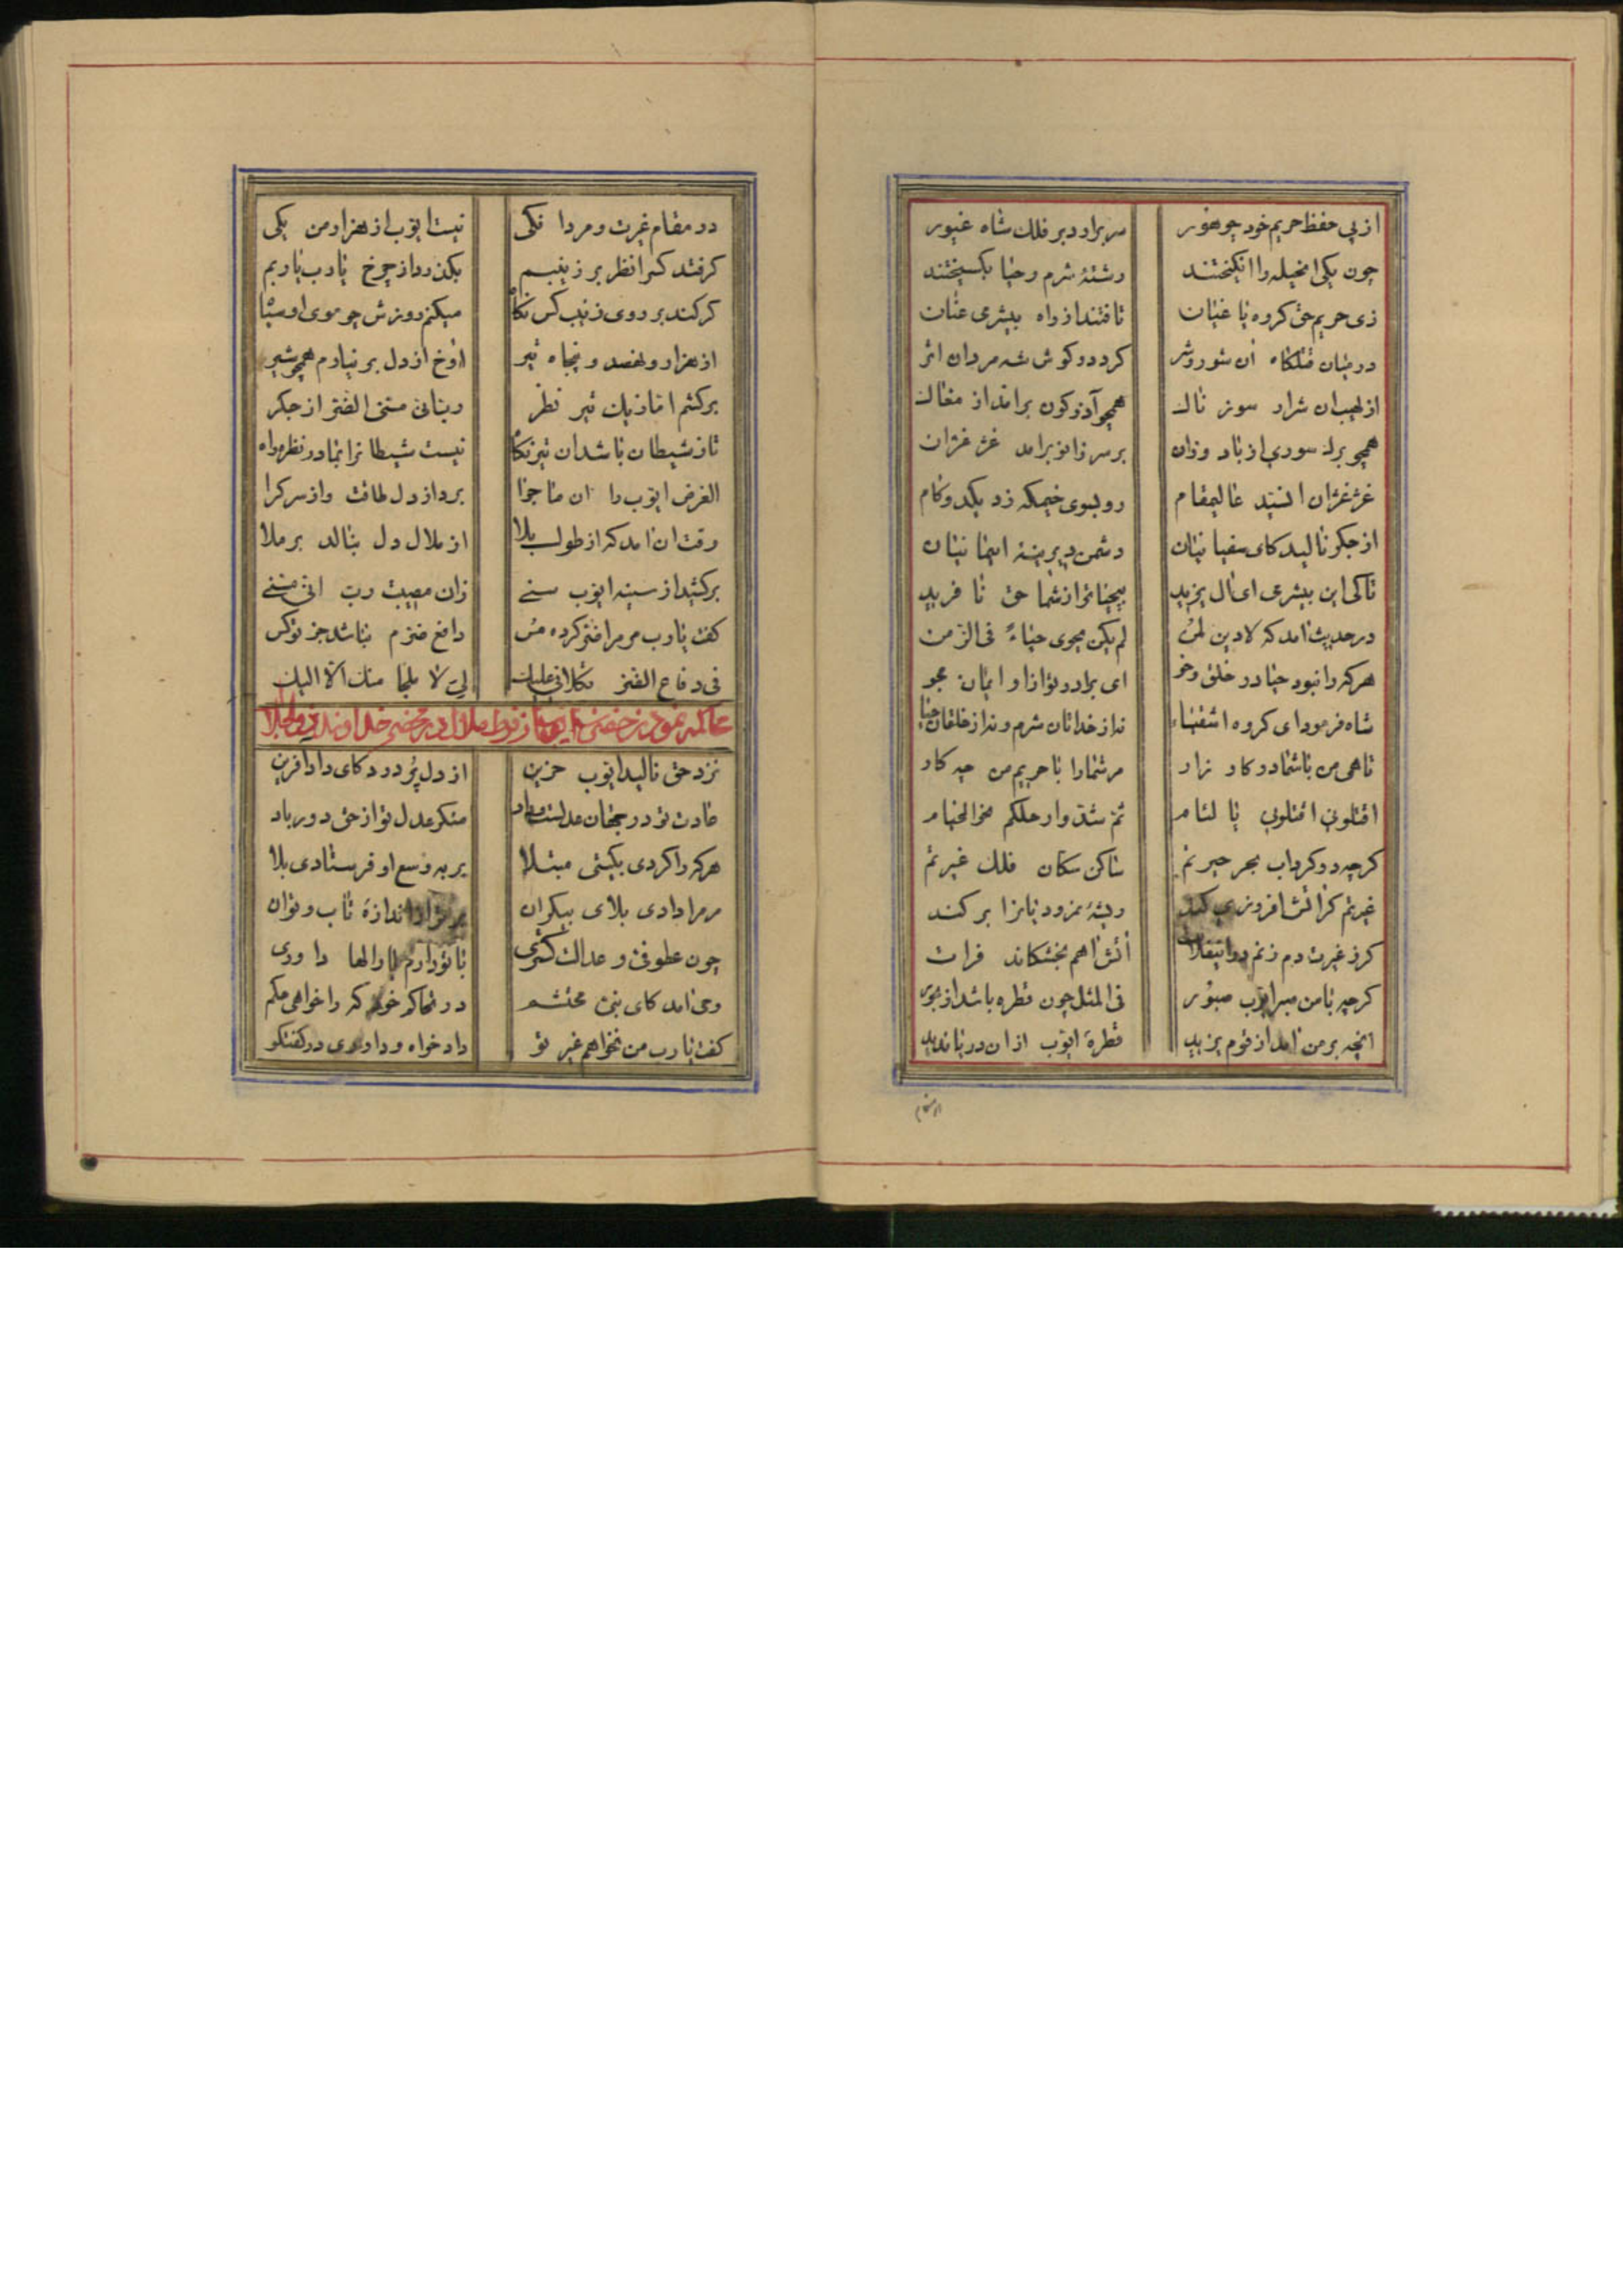 از پی حفظ حریم خود چو هور سر برارد بر فلک شاه غیور
چون یکی را خیله را انکیختند رشتهٔ شرم و حیا بکسیختند
زی حریم حق کروه یاغیان تافتند از راه بیشرمی عنان
در میان قتلکاه آن شور و شر کرد در کوش شه مردان اثر
از لهیب آن شرار سوز ناک همچو آذرکون برامد از مغاک
همچو برک سوری از باد وزان بر سر زانو برامد غژ غژان
غژ غژان السید عالیمقام رو بسوی خیمکه زد یکدو کام
از جکر نالید کای سفیانیان دشمن دیرینهٔ ایمانیان
تا کی این بیشرمی ای ال یزید بیحیاتر از شما حق نافرید
در حدیث امد که لا دین لمن لم یکن یحوی حیاءً فی الزمن
هرکه را نبود حیا در خلق و خو ای برادر تو ازاو ایمان مجو
شاه فرمود ای کروه اشقیاء نه از خداتان شرم و نه از خلقان حیا
تا همی من با شما در کار زار مر شما را با حریم من چه کار
اقتلونی اقتلونی یا لئام ثم شدوا رحلکم نحو الخیام
کرچه در کرداب بحر حیرتم ساکن سکان فلک غیرتم
غیرتم کر اتش افروزی کند ریشهٔ نمرودیانرا بر کند
کر ز غیرت دم زنم در اینفلات آتش آهم بخشکاند فرات
کرچه با من صبر ایوب صبور فی المثل چون قطره باشد از بحور
انچه بر من امد از قوم یزید قطرهٔ ایوب ازان دریا ندید
در مقام غیرت و مردانکی نیست ایوب از هزار من یکی
کر فتد کس را نظر بر زینبم بکذرد از چرخ یارب یاربم
کر کند بر روی زینب کس نکاه میکنم روزش چو موی او سیاه
از هزار و نهصد و پنجاه تیر اوخ از دل بر نیارم همچو شیر
بر کشم اما ز یک تیر نظر ربنا انی مسنی الضر از جکر
تا ز شیطان باشد ان تیر نکاه نیست شیطانرا بما در نظر راه
الغرض ایوب را ان ماجرا برد از دل طاقت و از سر کرا
وقت ان امد که از طول بلا از ملال دل بنالد بر ملا
بر کشید از سینه ایوب سنی زان مصیبت رب انی مسنی
کفت یارب مر مرا ضر کرده مس دافع ضرم نباشد جز تو کس
فی دفاع الضر تکلانی علیک لی لا ملجا منک الا الیک
نزد حق نالید ایوب حزین از دل پر درد کای دادافرین
عادت تو در جهان عدلست و داد منکر عدل تو از حق دور باد
هرکه را کردی بکیتی مبتلا بر به وسع او فرستادی بلا
مر مرا دادی بلای بیکران برتر از اندازهٔ تاب و توان
چون عطوفی و عدالت کستری با تو دارم بار الها داوری
وحی امد کای نبی محتشم در تحاکم خود که را خواهی حکم
کفت یارب من نخواهم غیر تو دادخواه و داوری در کفتکو